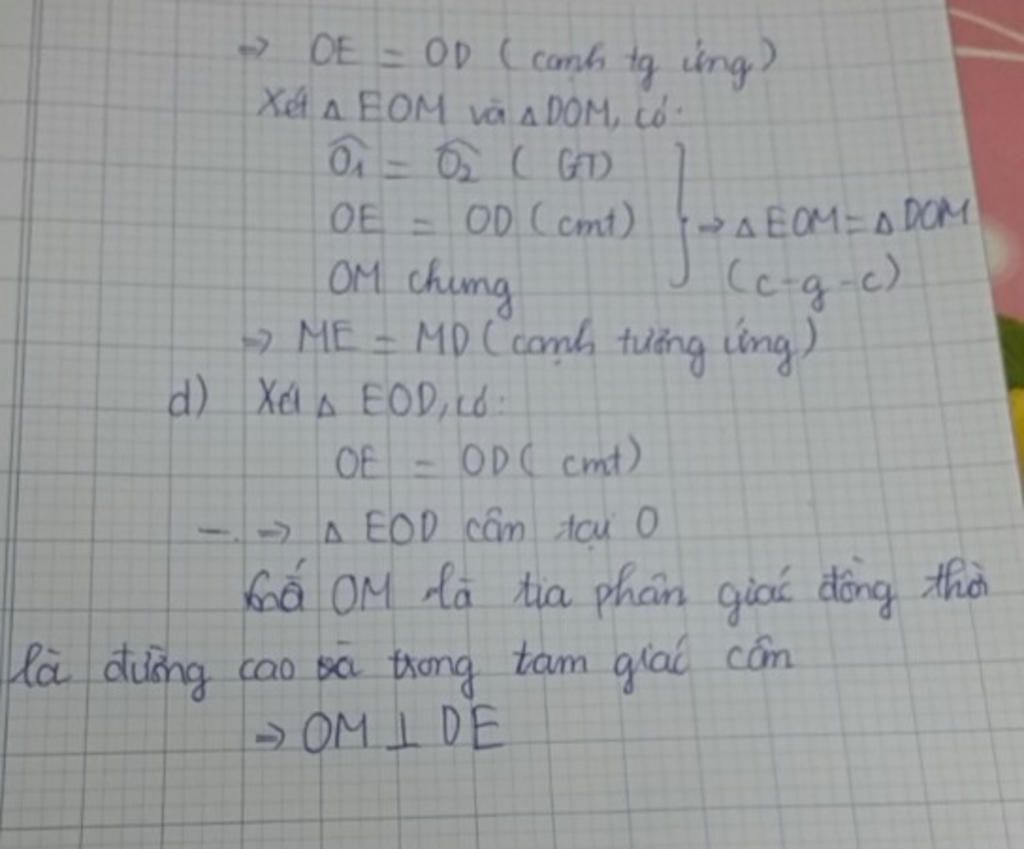 => OE = OD ( cạnh tg ứng )
Xét △ EOM và △ DOM, có:
Ô₁ = Ô₂ ( GT)
OE = OD ( cmt)
OM chung
} => △ EOM = △ DOM
(c-g-c)
=> ME = MD ( cạnh tương ứng )
d) Xét △ EOD, có:
OE = OD ( cmt)
=> △ EOD cân tại O
OM là tia phân giác đồng thời
là đường cao trong tam giác cân
=> OM ⊥ DE